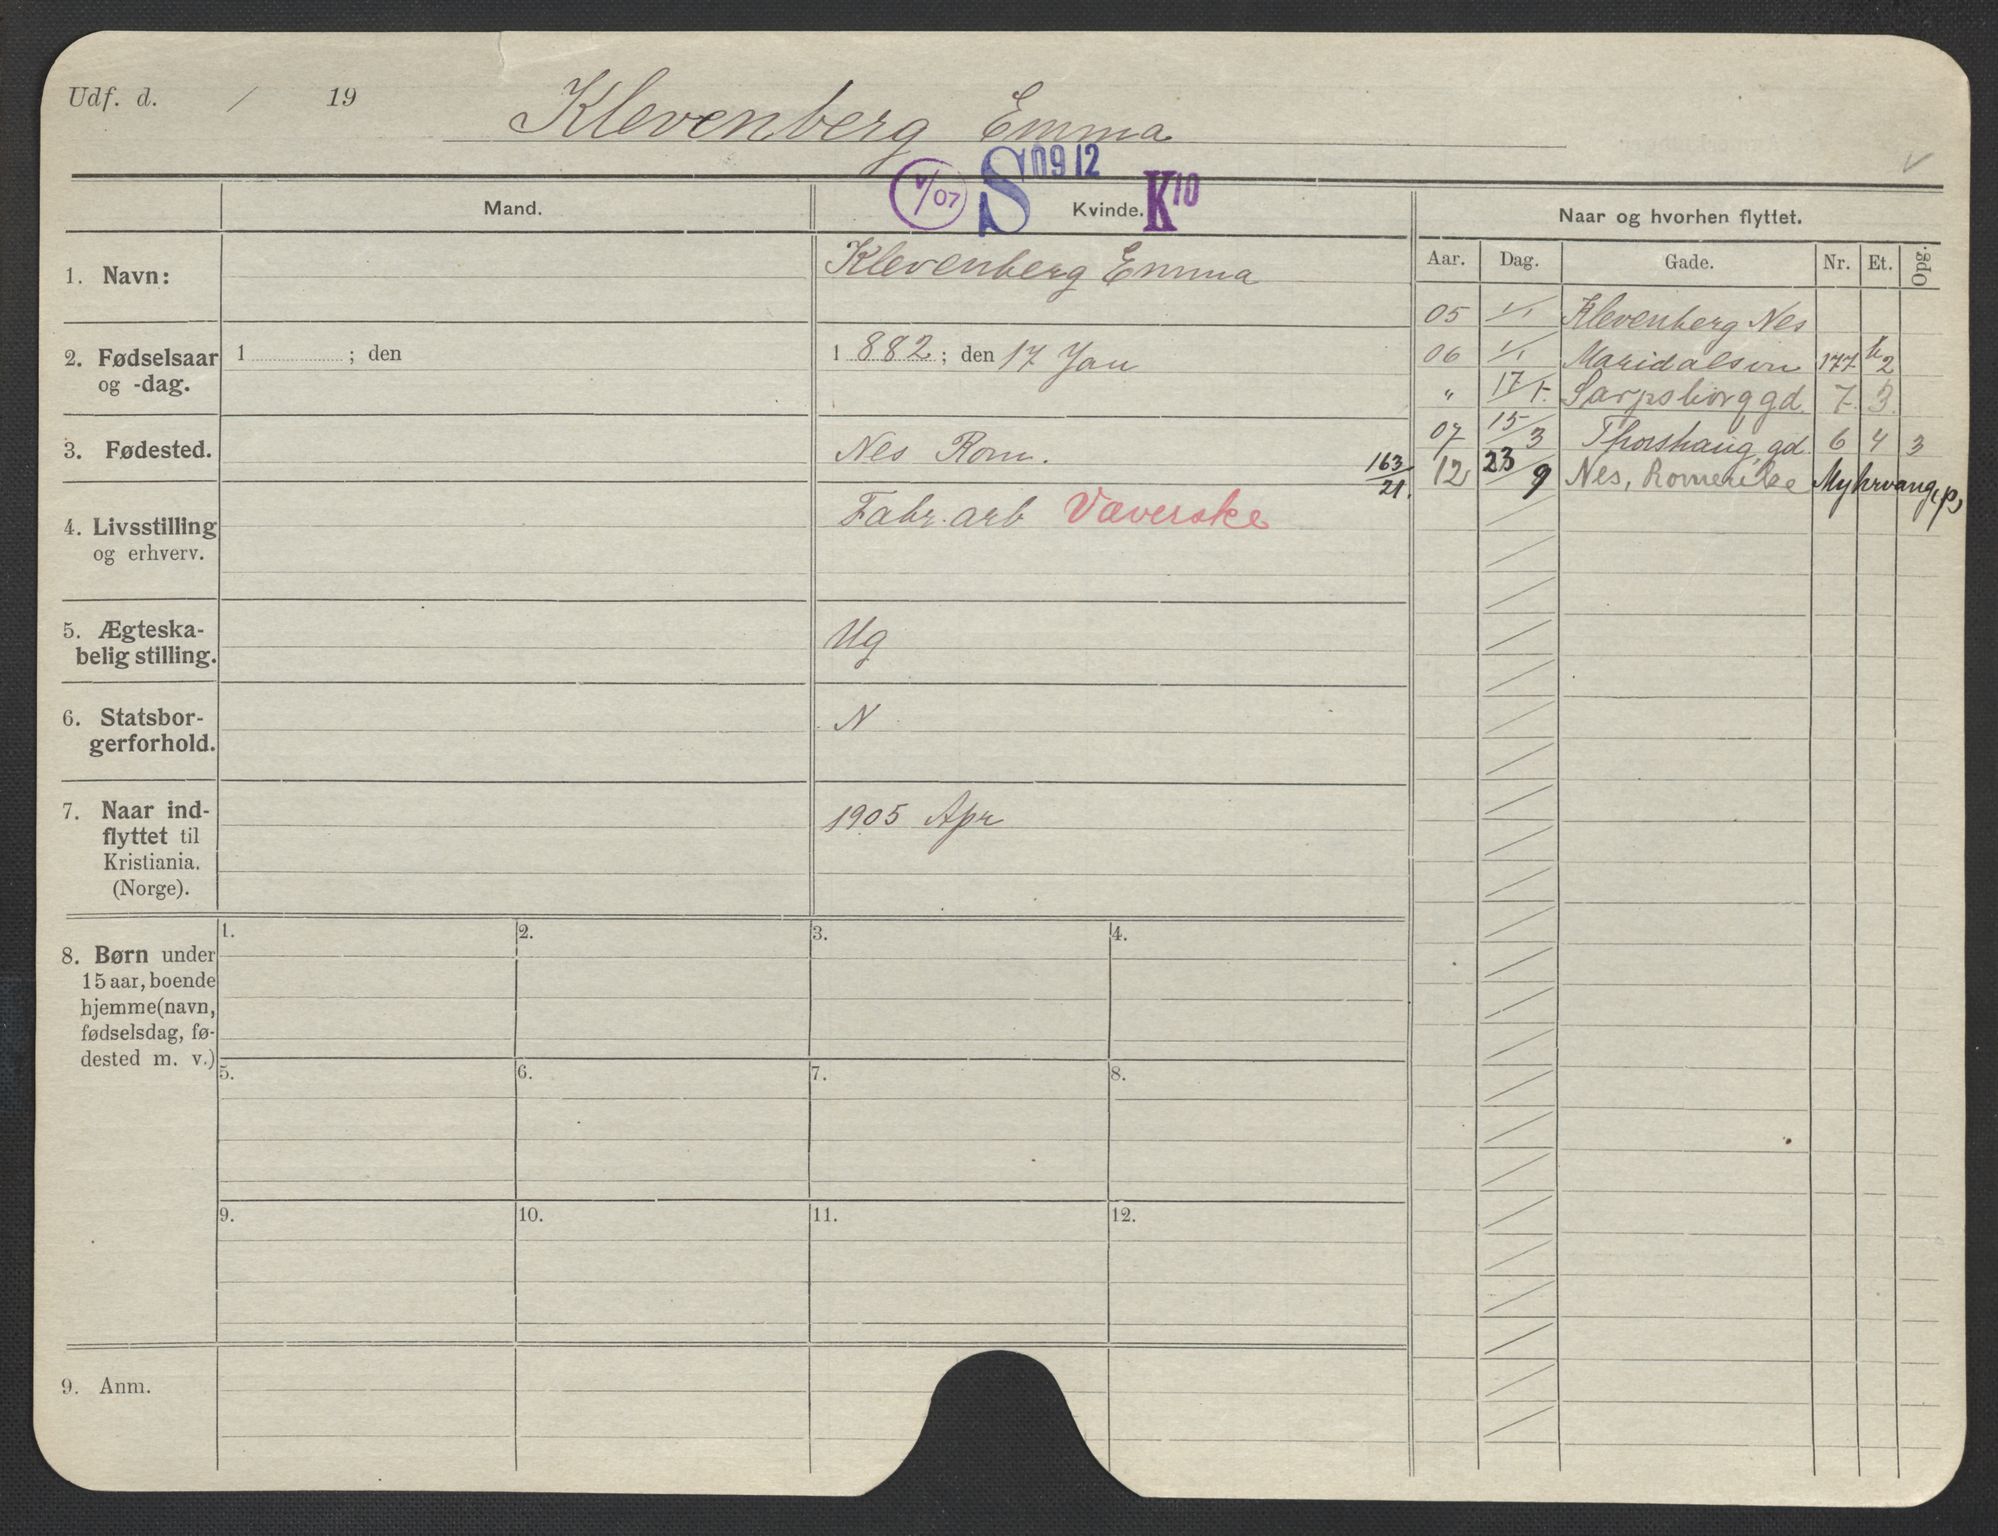 Udf. d. / 19
Klevenberg Emma
V/07 S 0912 K10
Mand. Kvinde. Naar og hvorhen flyttet.
Aar. Dag. Gade. Nr. Et. Opg.
1. Navn: Klevenberg Emma
2. Fødselsaar og -dag. 1 ; den 1 882; den 17 Jan
3. Fødested. Nes Rom.
163/21.
4. Livsstilling og erhverv. Fabr. arb Væverske
5. Ægteska-
belig stilling. Ug
6. Statsbor-
gerforhold. N
7. Naar ind-
flyttet til
Kristiania.
(Norge).
1905 Apr
05 1/1 Klevenberg Nes
06 1/1 Maridalsvn 177 2
" 17/1 Sarpsborggd. 7. 3.
07 15/3 Thorshauggd. 6 4 3
12 23/9 Nes, Romerike Myhrvang, p,
8. Børn under
15 aar, boende
hjemme (navn,
fødselsdag, fø-
dested m. v.)
1. 2. 3. 4.
5. 6. 7. 8.
9. 10. 11. 12.
9. Anm.